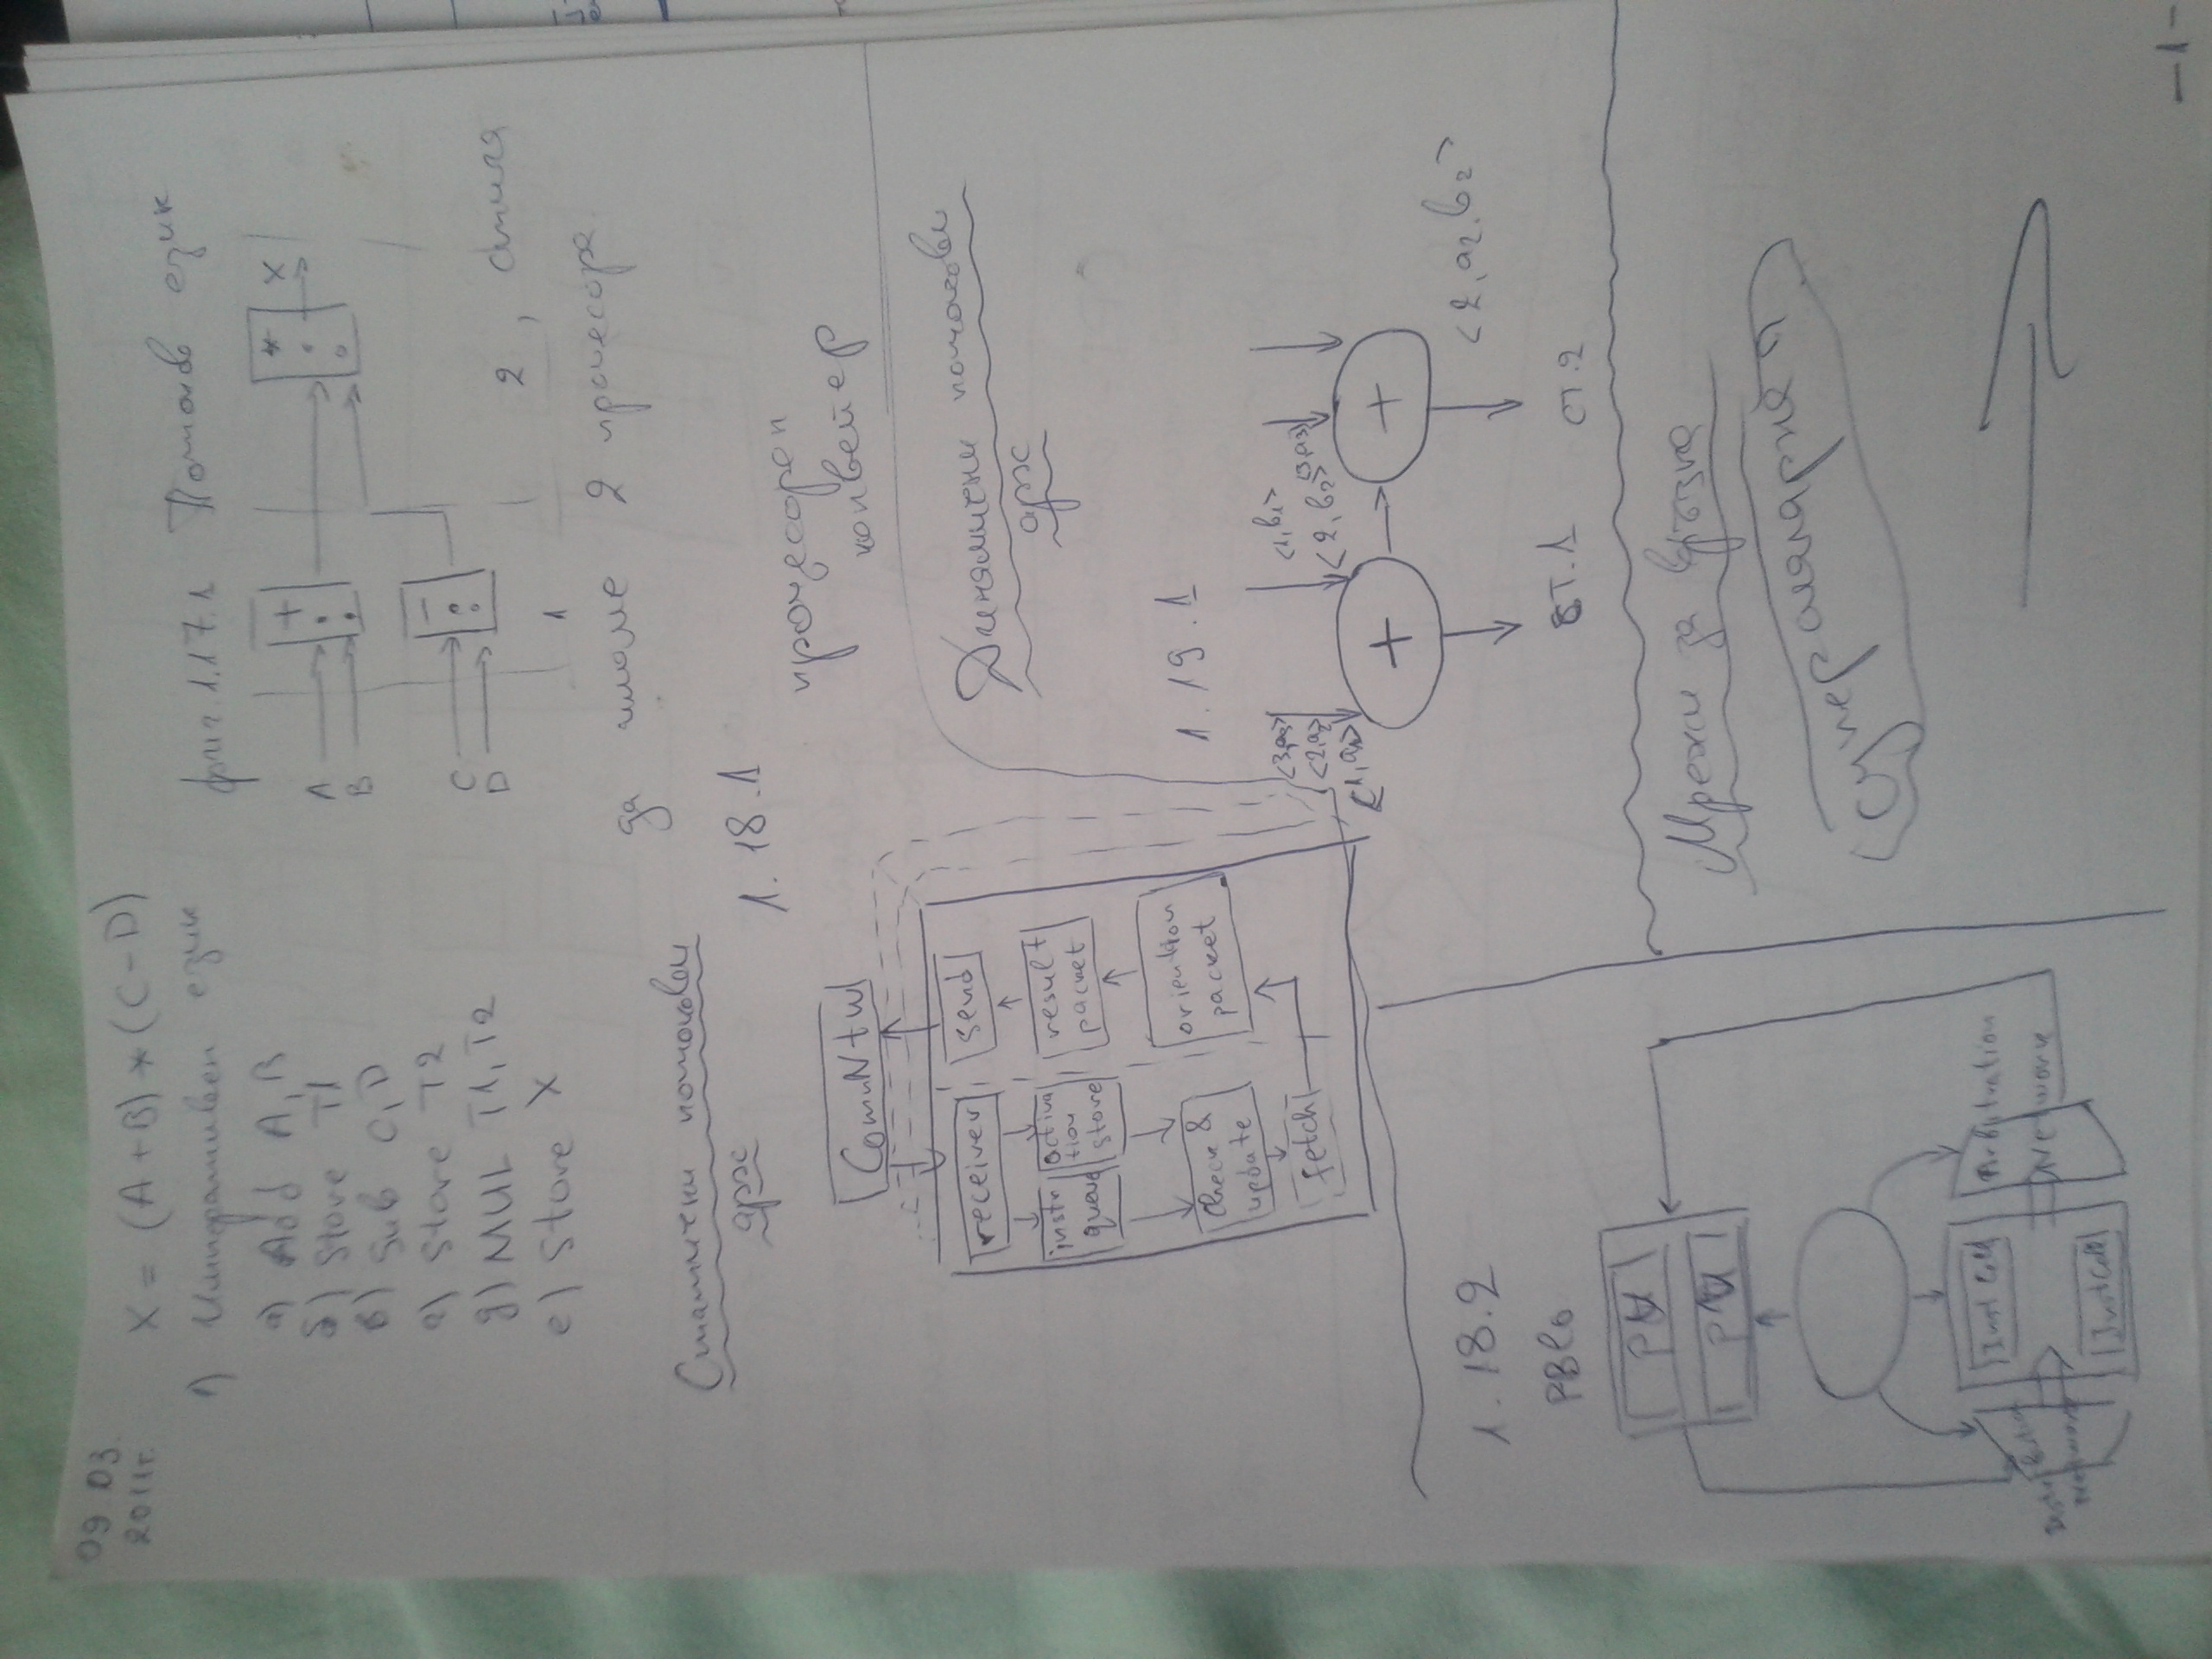 09 03.
2011г.
X = (A+B)*(C-D)
1) Императивен език
а) Add A, B
б) Store T1
в) Sub C, D
г) Store T2
д) MUL T1, T2
е) Store X
фиг. 1.17.1 Потоков език
A
B
+
*
X
C
D
-
1
2, стига
да имаме 2 процесора
Статични потокови
арх
1.18.1
процесорен
конвейер
CommNtw
receiver
send
instr
queue
activa
tion
store
result
packet
check &
update
oriention
packet
fetch
Динамични потокови
арх
1.19.1
<3,a3>
<2,a2>
<1,a1>
<1,b1>
<2,b2>
<3,a3>
+
+
<2,a2,b2>
ст.1
ст.2
1.18.2
Inst Cell
Inst Cell
Distribution
Network
Arbitration
Network
Мрежи за връзка
суперскаларнен
-1-